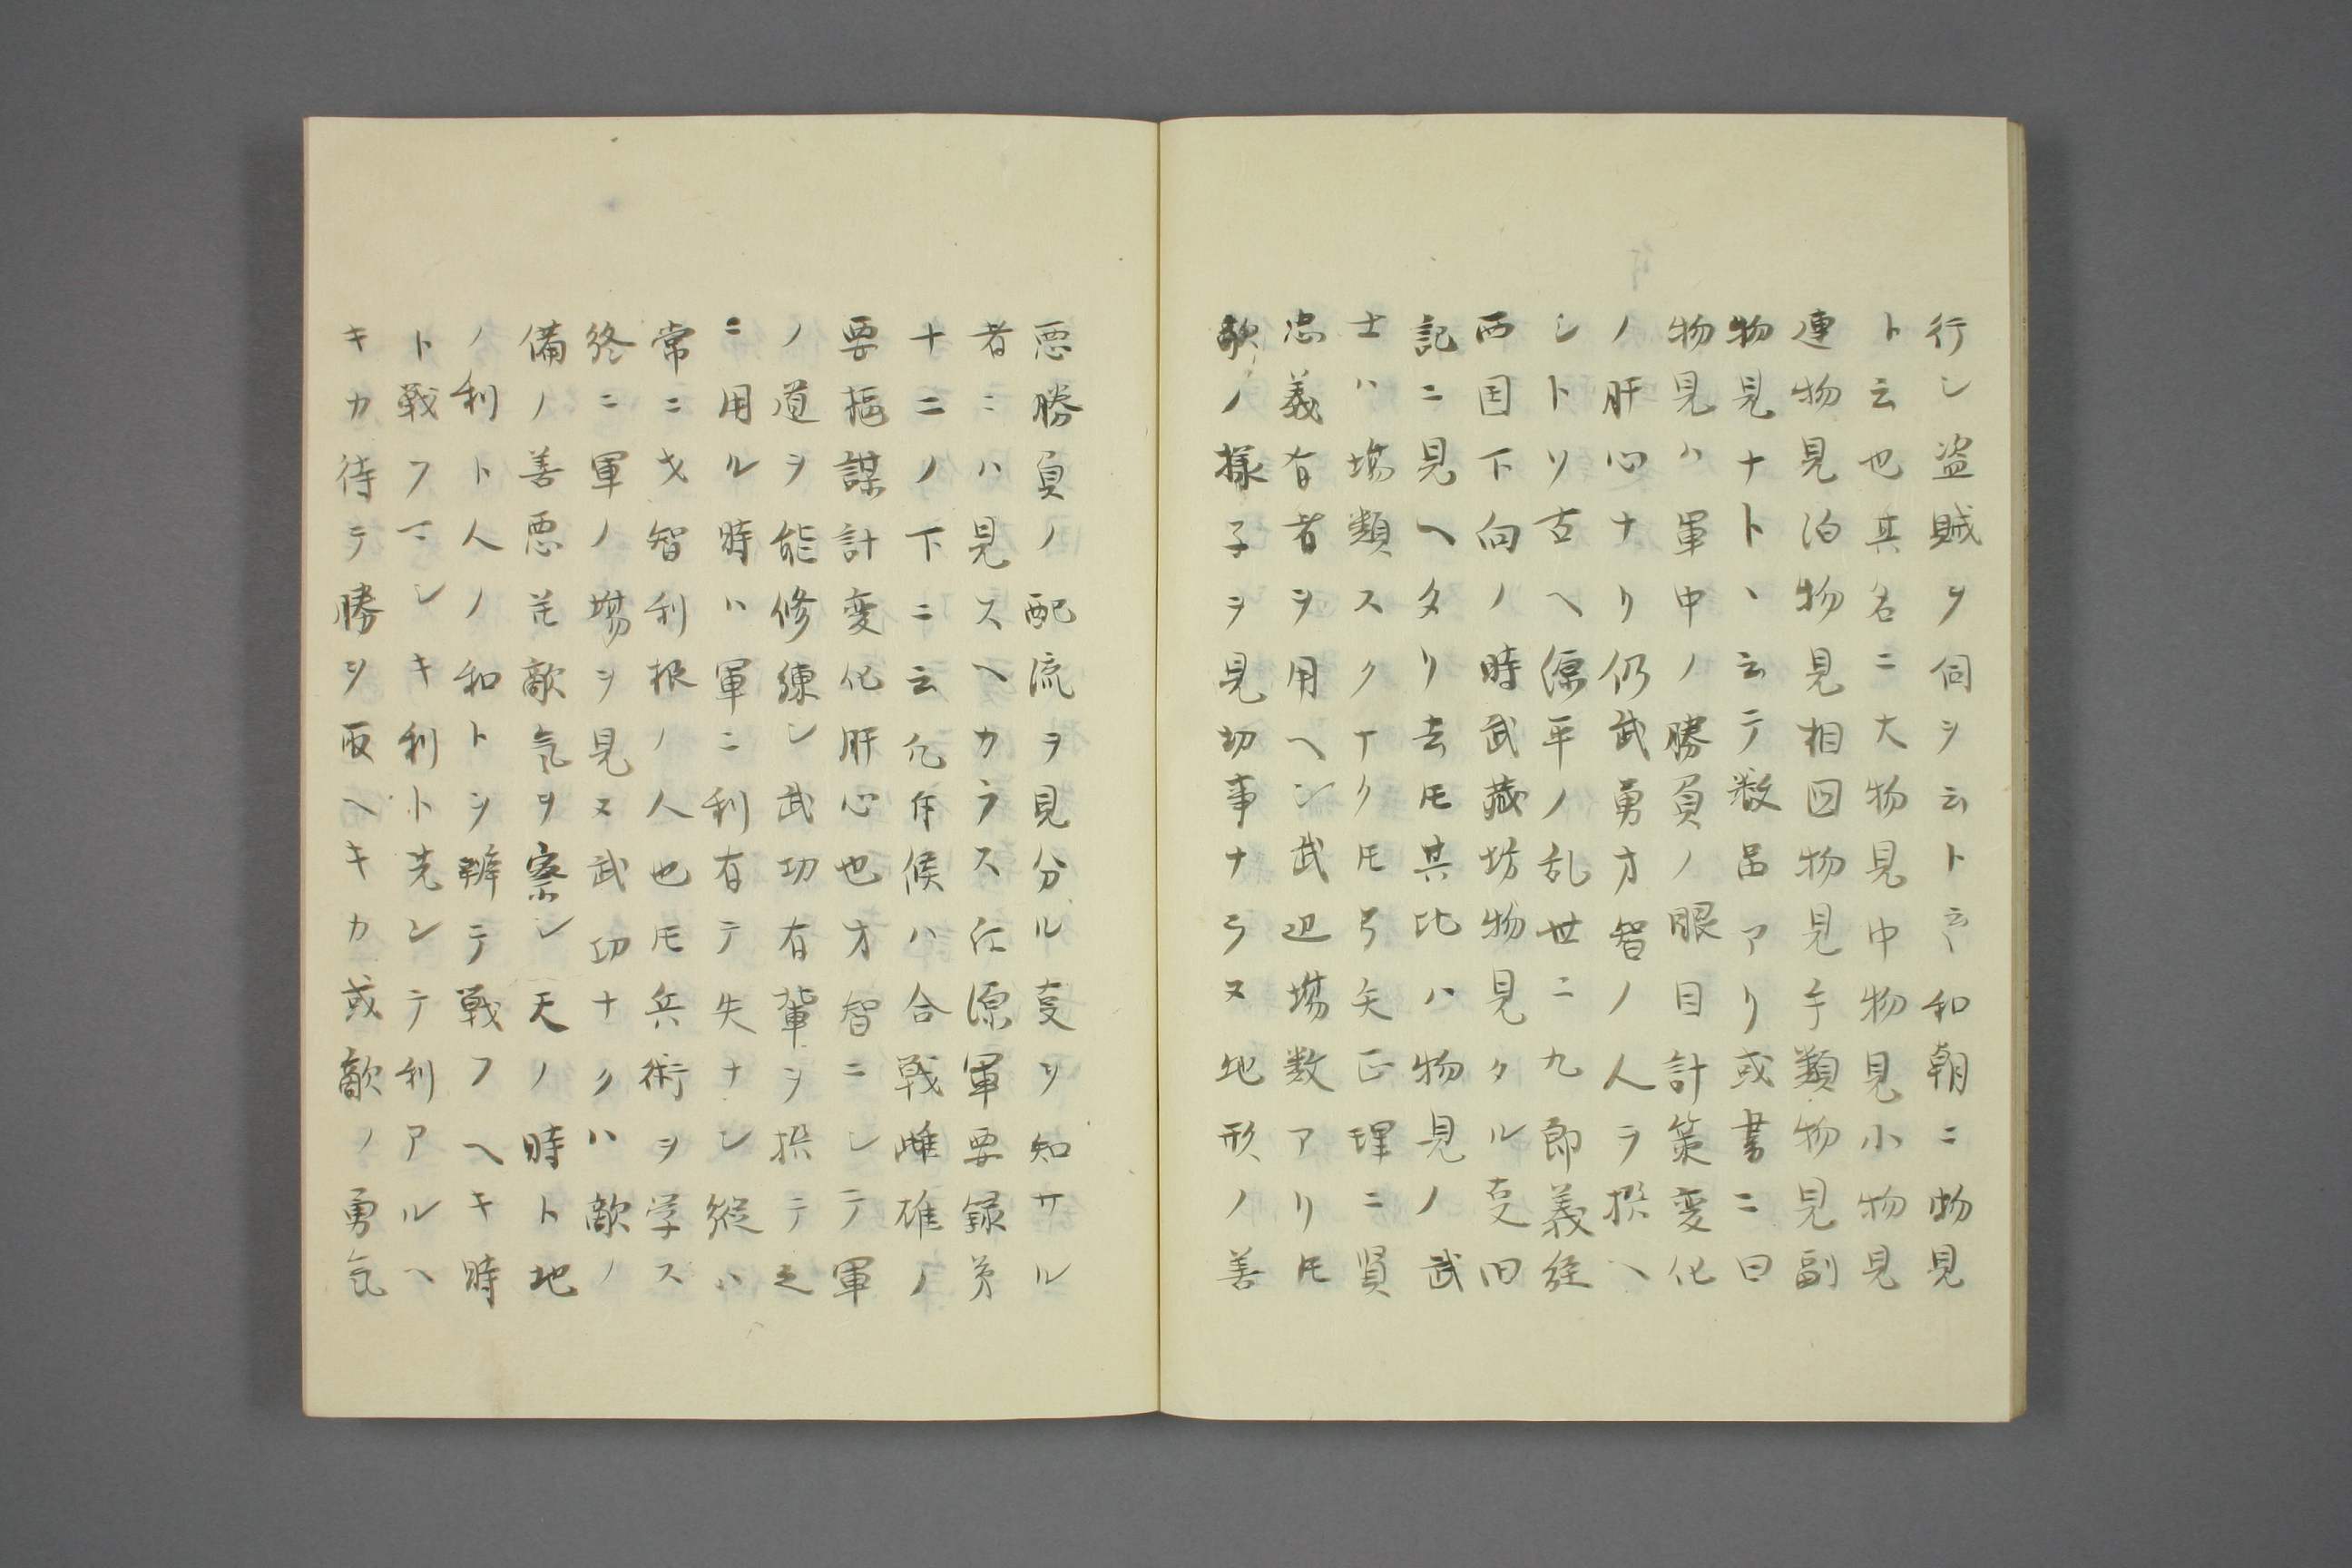 行シ盗賊ヲ伺シ云ト云〻和朝ニ物見
ト云也其名ニ大物見中物見小物見
連物見泊物見相図物見手類物見副
物見ナト丶云テ数品アリ或書ニ曰
物見ハ軍中ノ勝負ノ眼目計策変化
ノ肝心ナリ仍武勇才智ノ人ヲ撰ヘ
シトソ古ヘ源平ノ乱世ニ九郎義経
西国下向ノ時武蔵坊物見タル㕝旧
記ニ見ヘタリ去𪜈其比ハ物見ノ武
士ハ場類スクナク𪜈弓矢正理ニ賢
忠義有者ヲ用ヘシ武辺場数アリ𪜈
敵ノ様子ヲ見切事ナラス地形ノ善
悪勝負ノ配流ヲ見分ル㕝ヲ知サル
者ニハ見スヘカラス江源軍要録第
十二ノ下ニ云凡斥候ハ合戦雌雄ノ
要樞謀計変化肝心也才智ニシテ軍
ノ道ヲ能修練シ武功有輩ヲ撰テ之
ニ用ル時ハ軍ニ利有テ失ナシ縦ハ
常ニ才智利根ノ人也𪜈兵術ヲ学ス
終ニ軍ノ場ヲ見ス武功ナクハ敵ノ
備ノ善悪并敵気ヲ察シ天ノ時ト地
ノ利ト人ノ和トヲ辨テ戦フヘキ時
ト戦フマシキ利ト先ンテ利アルヘ
キカ待テ勝ヲ取ヘキカ或敵ノ勇気